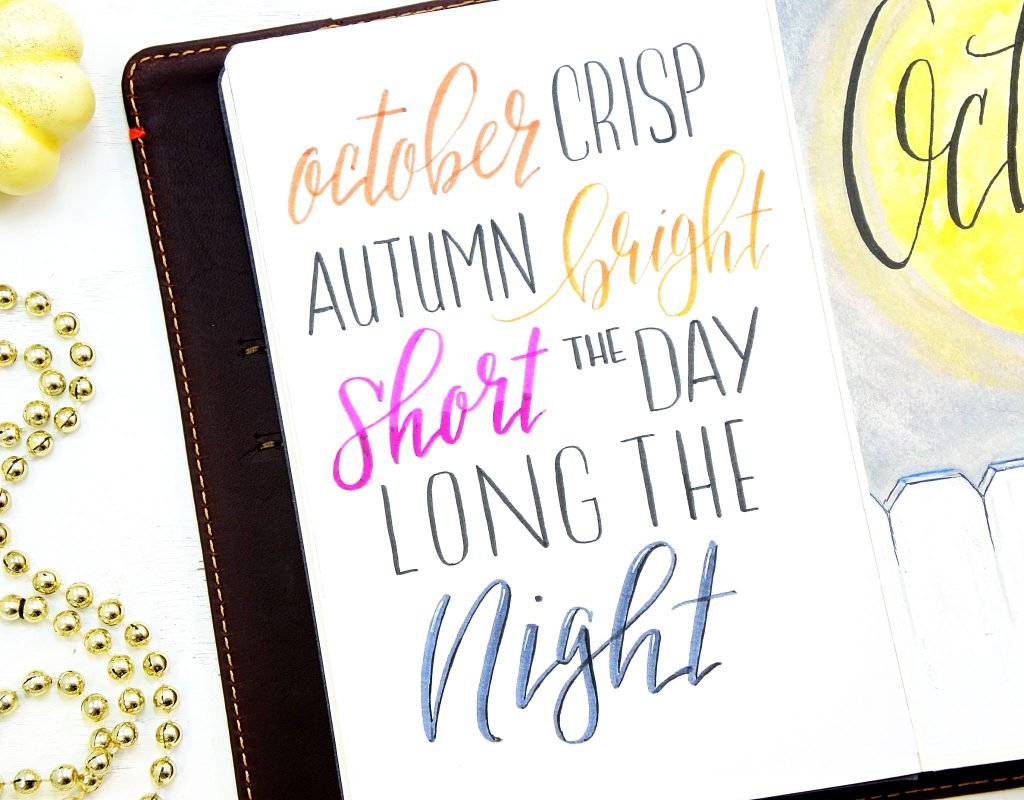 october CRISP
AUTUMN bright
Short THE DAY
LONG THE
Night
Oct